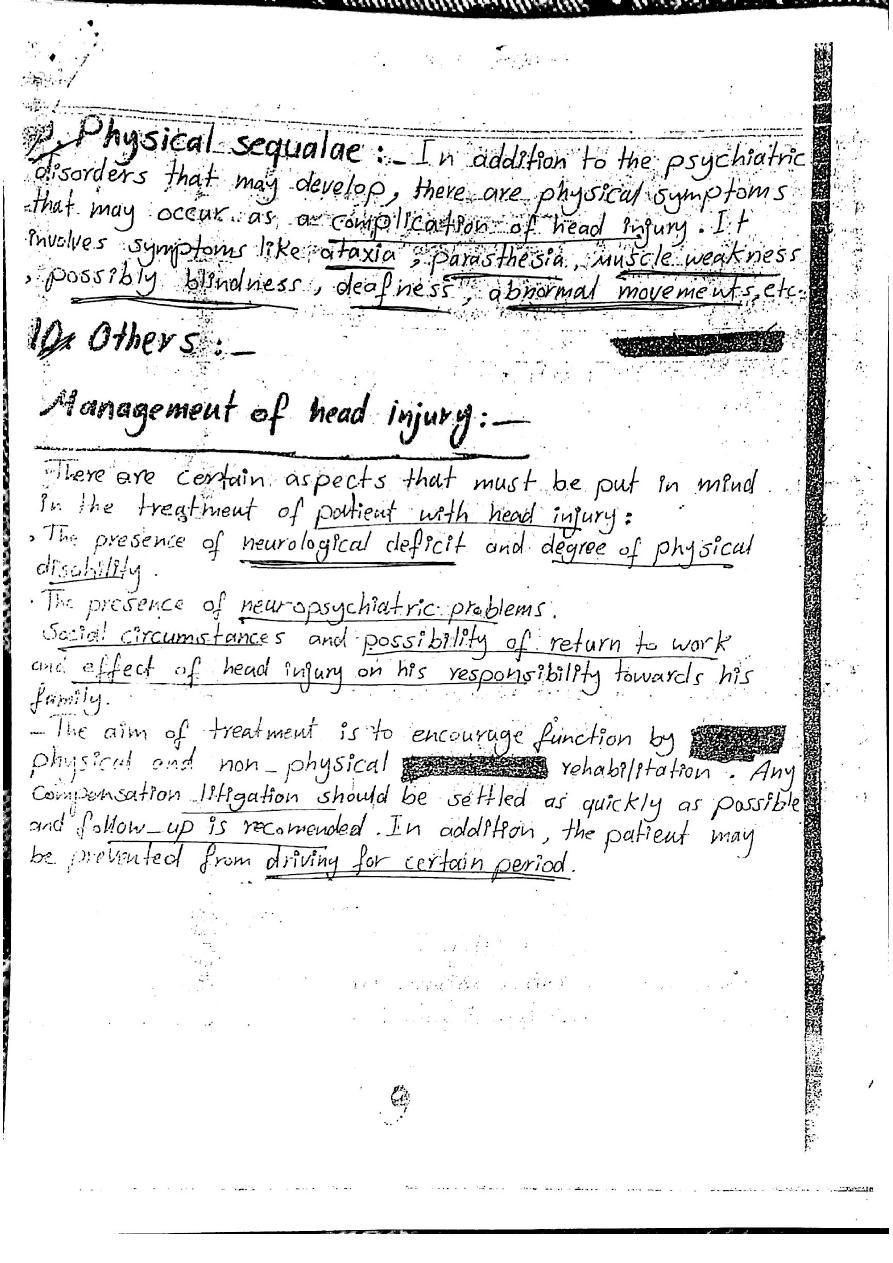 9. Physical sequalae :- In addition to the psychiatric
disorders that may develop, there are physical symptoms
that may occur as a complication of head injury. It
involves symptoms like ataxia, parasthesia, muscle weakness
, possibly blindness, deafness, abnormal movements, etc.
10. Others :-
Management of head injury:-
There are certain aspects that must be put in mind
in the treatment of patient with head injury:
. The presence of neurological deficit and degree of physical
disability.
. The presence of neuropsychiatric problems.
Social circumstances and possibility of return to work
and effect of head injury on his responsibility towards his
family.
- The aim of treatment is to encourage function by
physical and non-physical rehabilitation. Any
compensation litigation should be settled as quickly as possible
and follow-up is recomended. In addition, the patient may
be prevented from driving for certain period.
9